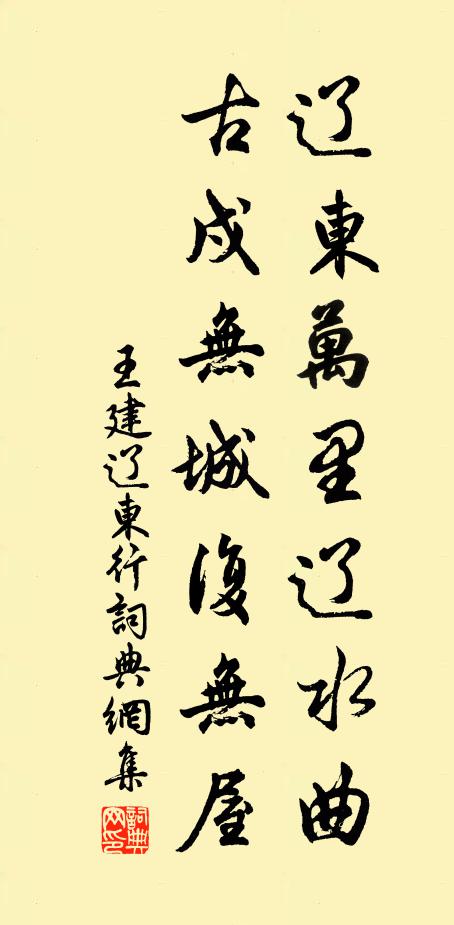 辽東萬里辽水曲
古戍無城復無屋
王建辽東行詞典網集
詞典網印